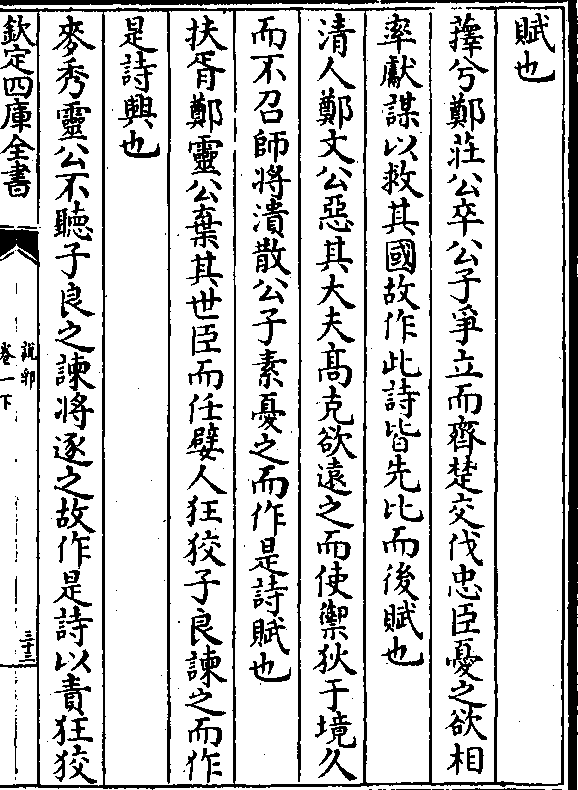 賦也
蘀兮鄭莊公卒公子爭立而齊楚交伐忠臣憂之欲相
率獻謀以救其國故作此詩皆先比而後賦也
清人鄭文公惡其大夫髙克欲遠之而使禦狄于境久
而不召師將潰散公子素憂之而作是詩賦也
扶胥鄭靈公棄其世臣而任嬖人狂狡子良諫之而作
是詩興也
麥秀靈公不聽子良之諫將逐之故作是詩以責狂狡
欽定四庫全書
說郛
卷一下
三十三